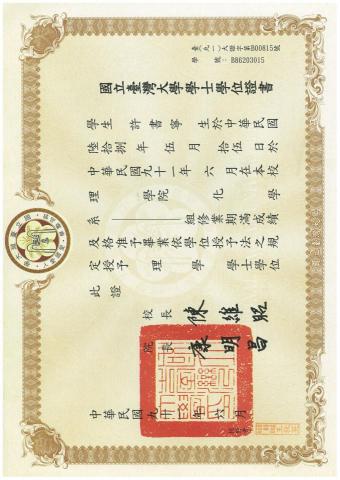 臺(九一)大證字第B00815號
學 號: B86203015
國立臺灣大學學士學位證書
學生 許書寧 生於中華民國
陸拾捌年伍月拾伍日於
中華民國九十一年六月在本校
理學院 化學
系 組修業期滿成績
及格准予畢業依學位授予法之規
定授予 理學學士學位
此證
校長 陳維昭
院長 康明昌
中華民國九十一年六月